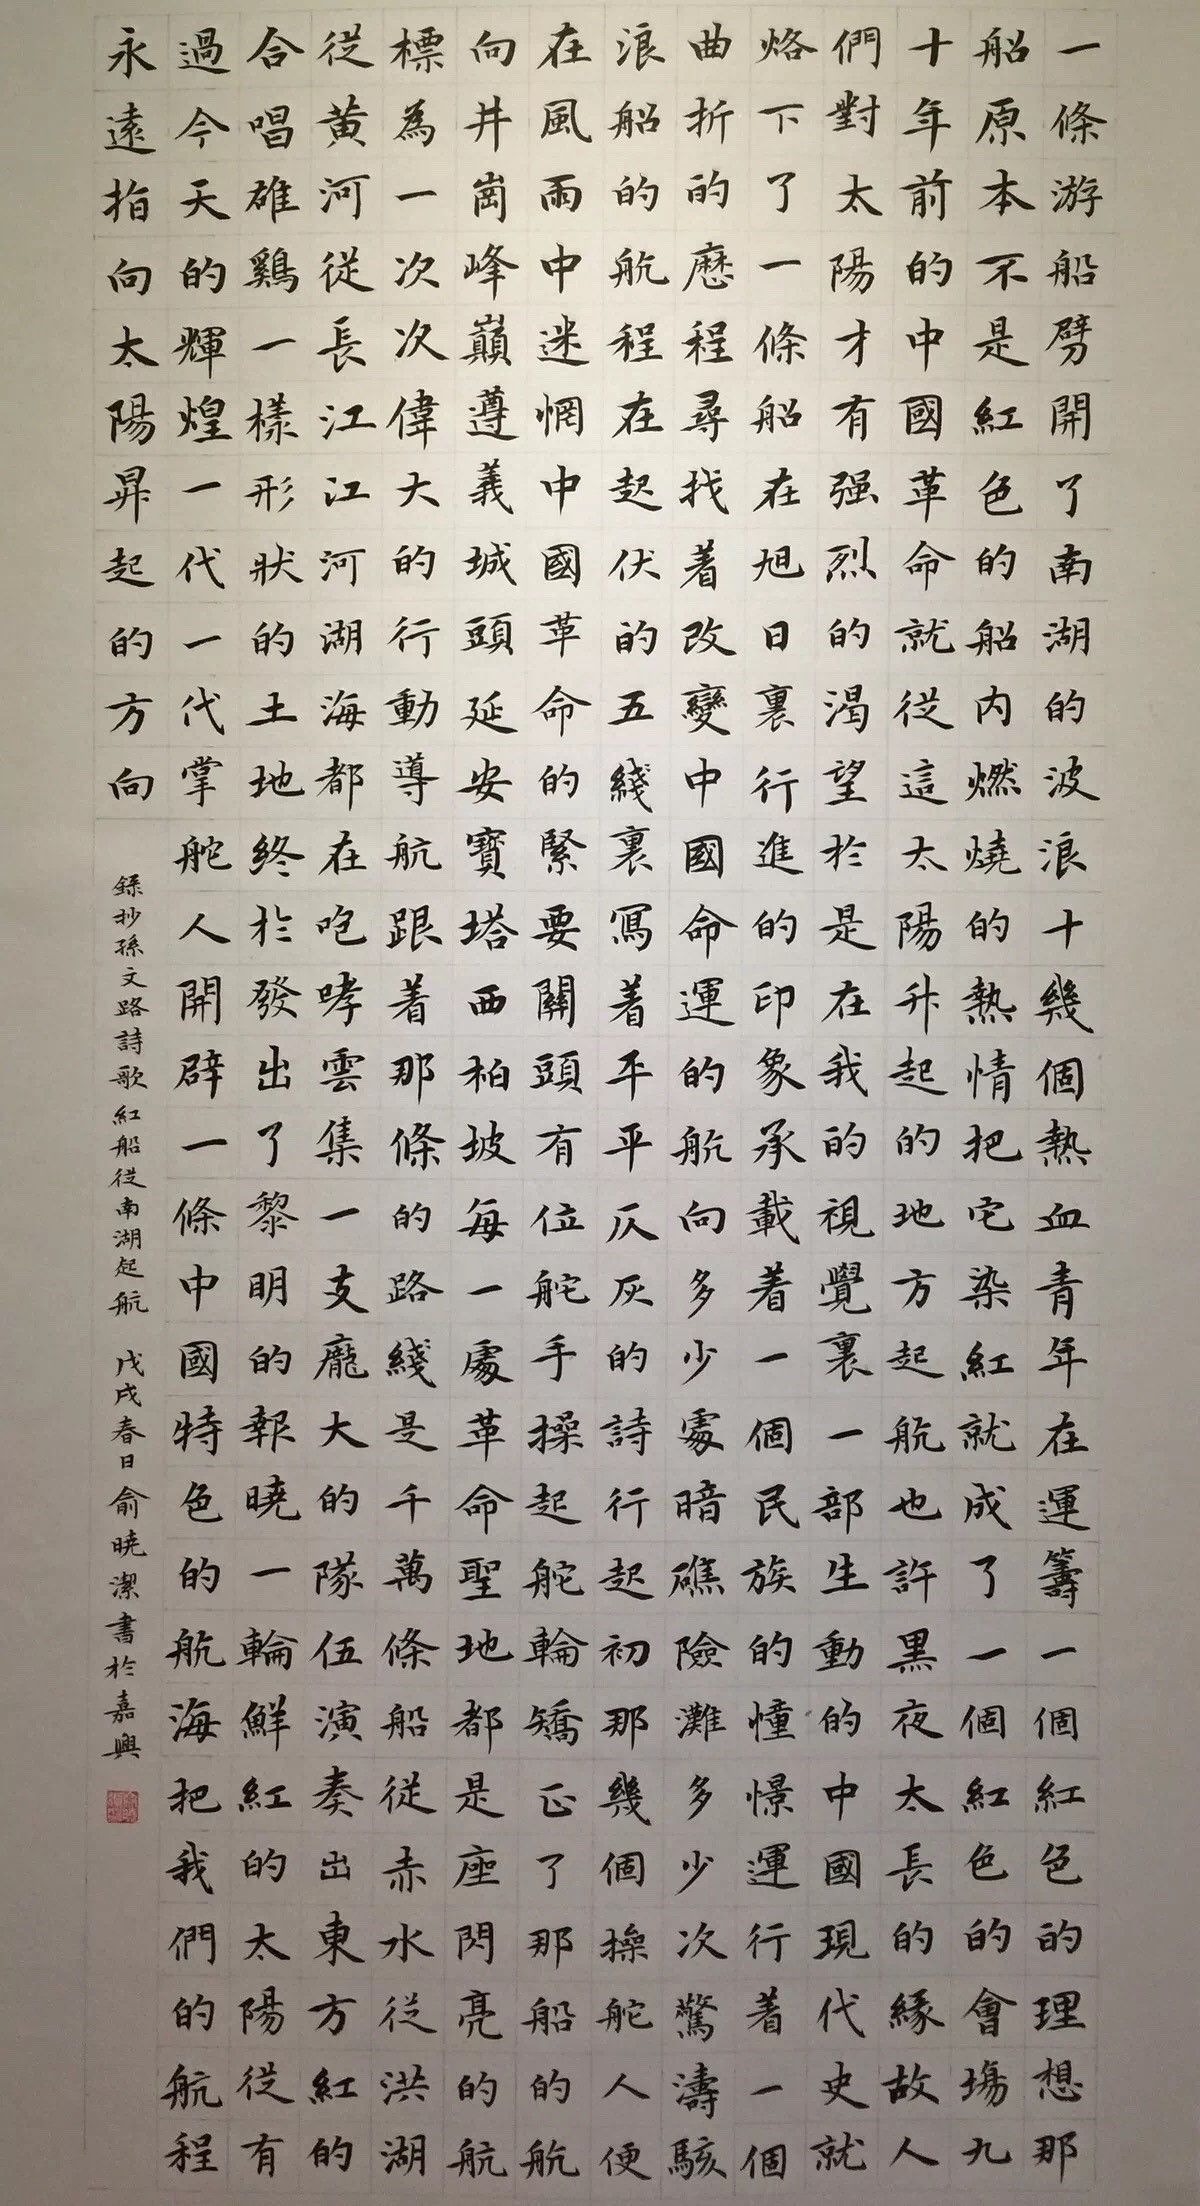 一條游船劈開了南湖的波浪十幾個熱血青年在運籌一個紅色的理想那
船原本不是紅色的船内燃燒的熱情把它染紅就成了一個紅色的會塲九
十年前的中國革命就從這太陽升起的地方起航也許黑夜太長的緣故人
們對太陽才有强烈的渴望於是在我的視覺裏一部生動的中國現代史就
烙下了一條船在旭日裏行進的印象承載着一個民族的憧憬運行着一個
曲折的歷程尋找着改變中國命運的航向多少處暗礁險灘多少次驚濤駭
浪船的航程在起伏的五綫裏寫着平平仄灰的詩行起初那幾個操舵人便
在風雨中迷惘中國革命的緊要關頭有位舵手操起舵輪矯正了那船的航
向井崗峰巔遵義城頭延安寶塔西柏坡每一處革命聖地都是座閃亮的航
標為一次次偉大的行動導航跟着那條的路綫是千萬條船從赤水從洪湖
從黄河從長江江河湖海都在咆哮雲集一支龐大的隊伍演奏出東方紅的
合唱雄鷄一樣形狀的土地終於發出了黎明的報曉一輪鮮紅的太陽從有
過今天的輝煌一代一代掌舵人開辟一條中國特色的航海把我們的航程
永遠指向太陽昇起的方向
錄抄孫文路詩歌紅船從南湖起航 戊戌春日俞曉潔書於嘉興